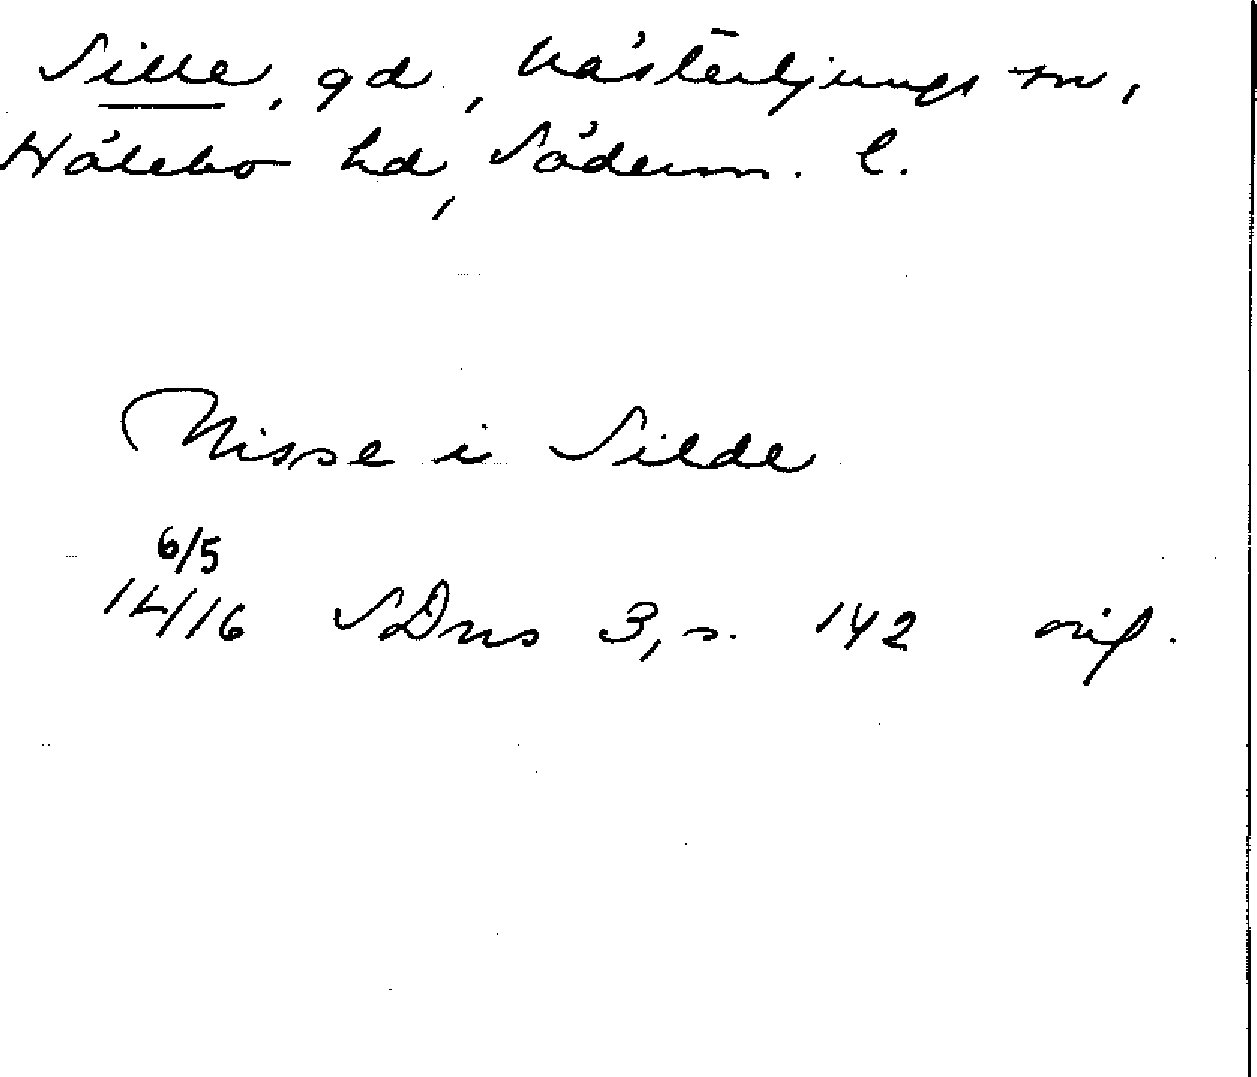 Sille, gd, Västerljungs sn,
Hölebo hd, Söderm. l.
Nisse i Silde
6/5
14/16 SDns 3, s. 142 orig.